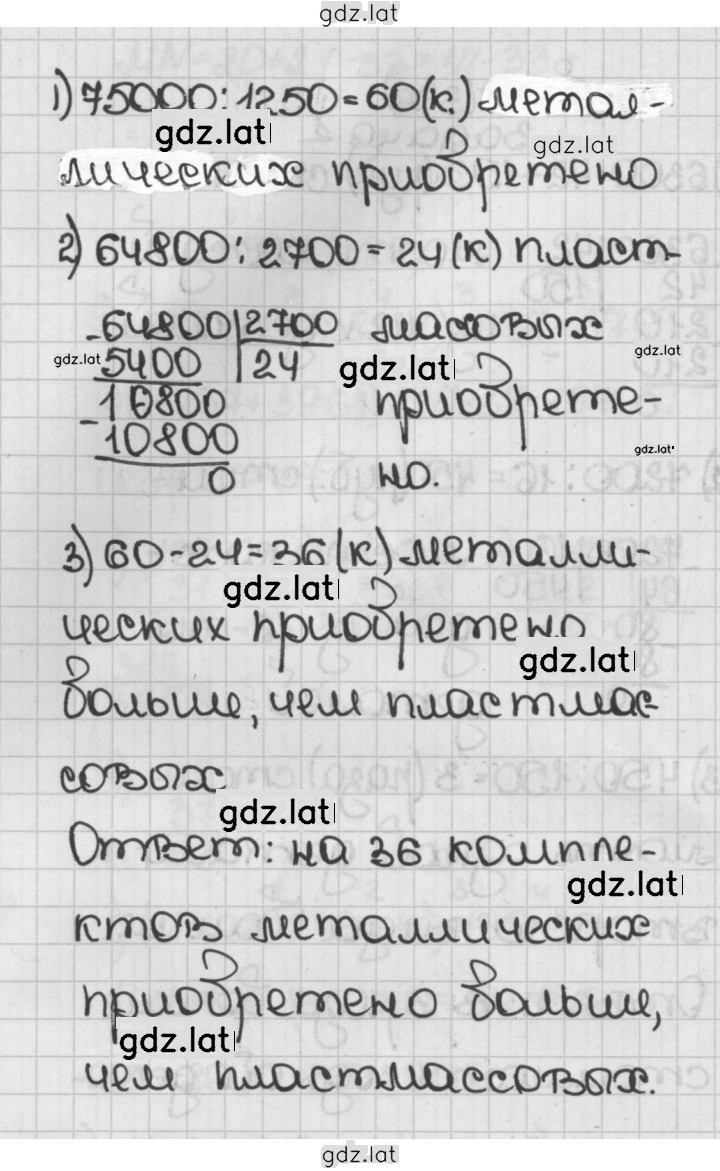 gdz.lat
1) 75000:1250=60(к.) метал-
gdz.lat
gdz.lat
лических приобретено
2) 64800:2700=24(к) пласт-
- 64800 2700 массовых
gdz.lat 5400 24 gdz.lat gdz.lat
- 10800 приобрете-
10800 gdz.lat
0 но.
3) 60-24=36(к) металли-
gdz.lat
ческих приобретено
gdz.lat
больше, чем пластмас-
совых
gdz.lat
Ответ: на 36 компле-
gdz.lat
ктов металлических
приобретено больше,
gdz.lat
чем пластмассовых.
gdz.lat